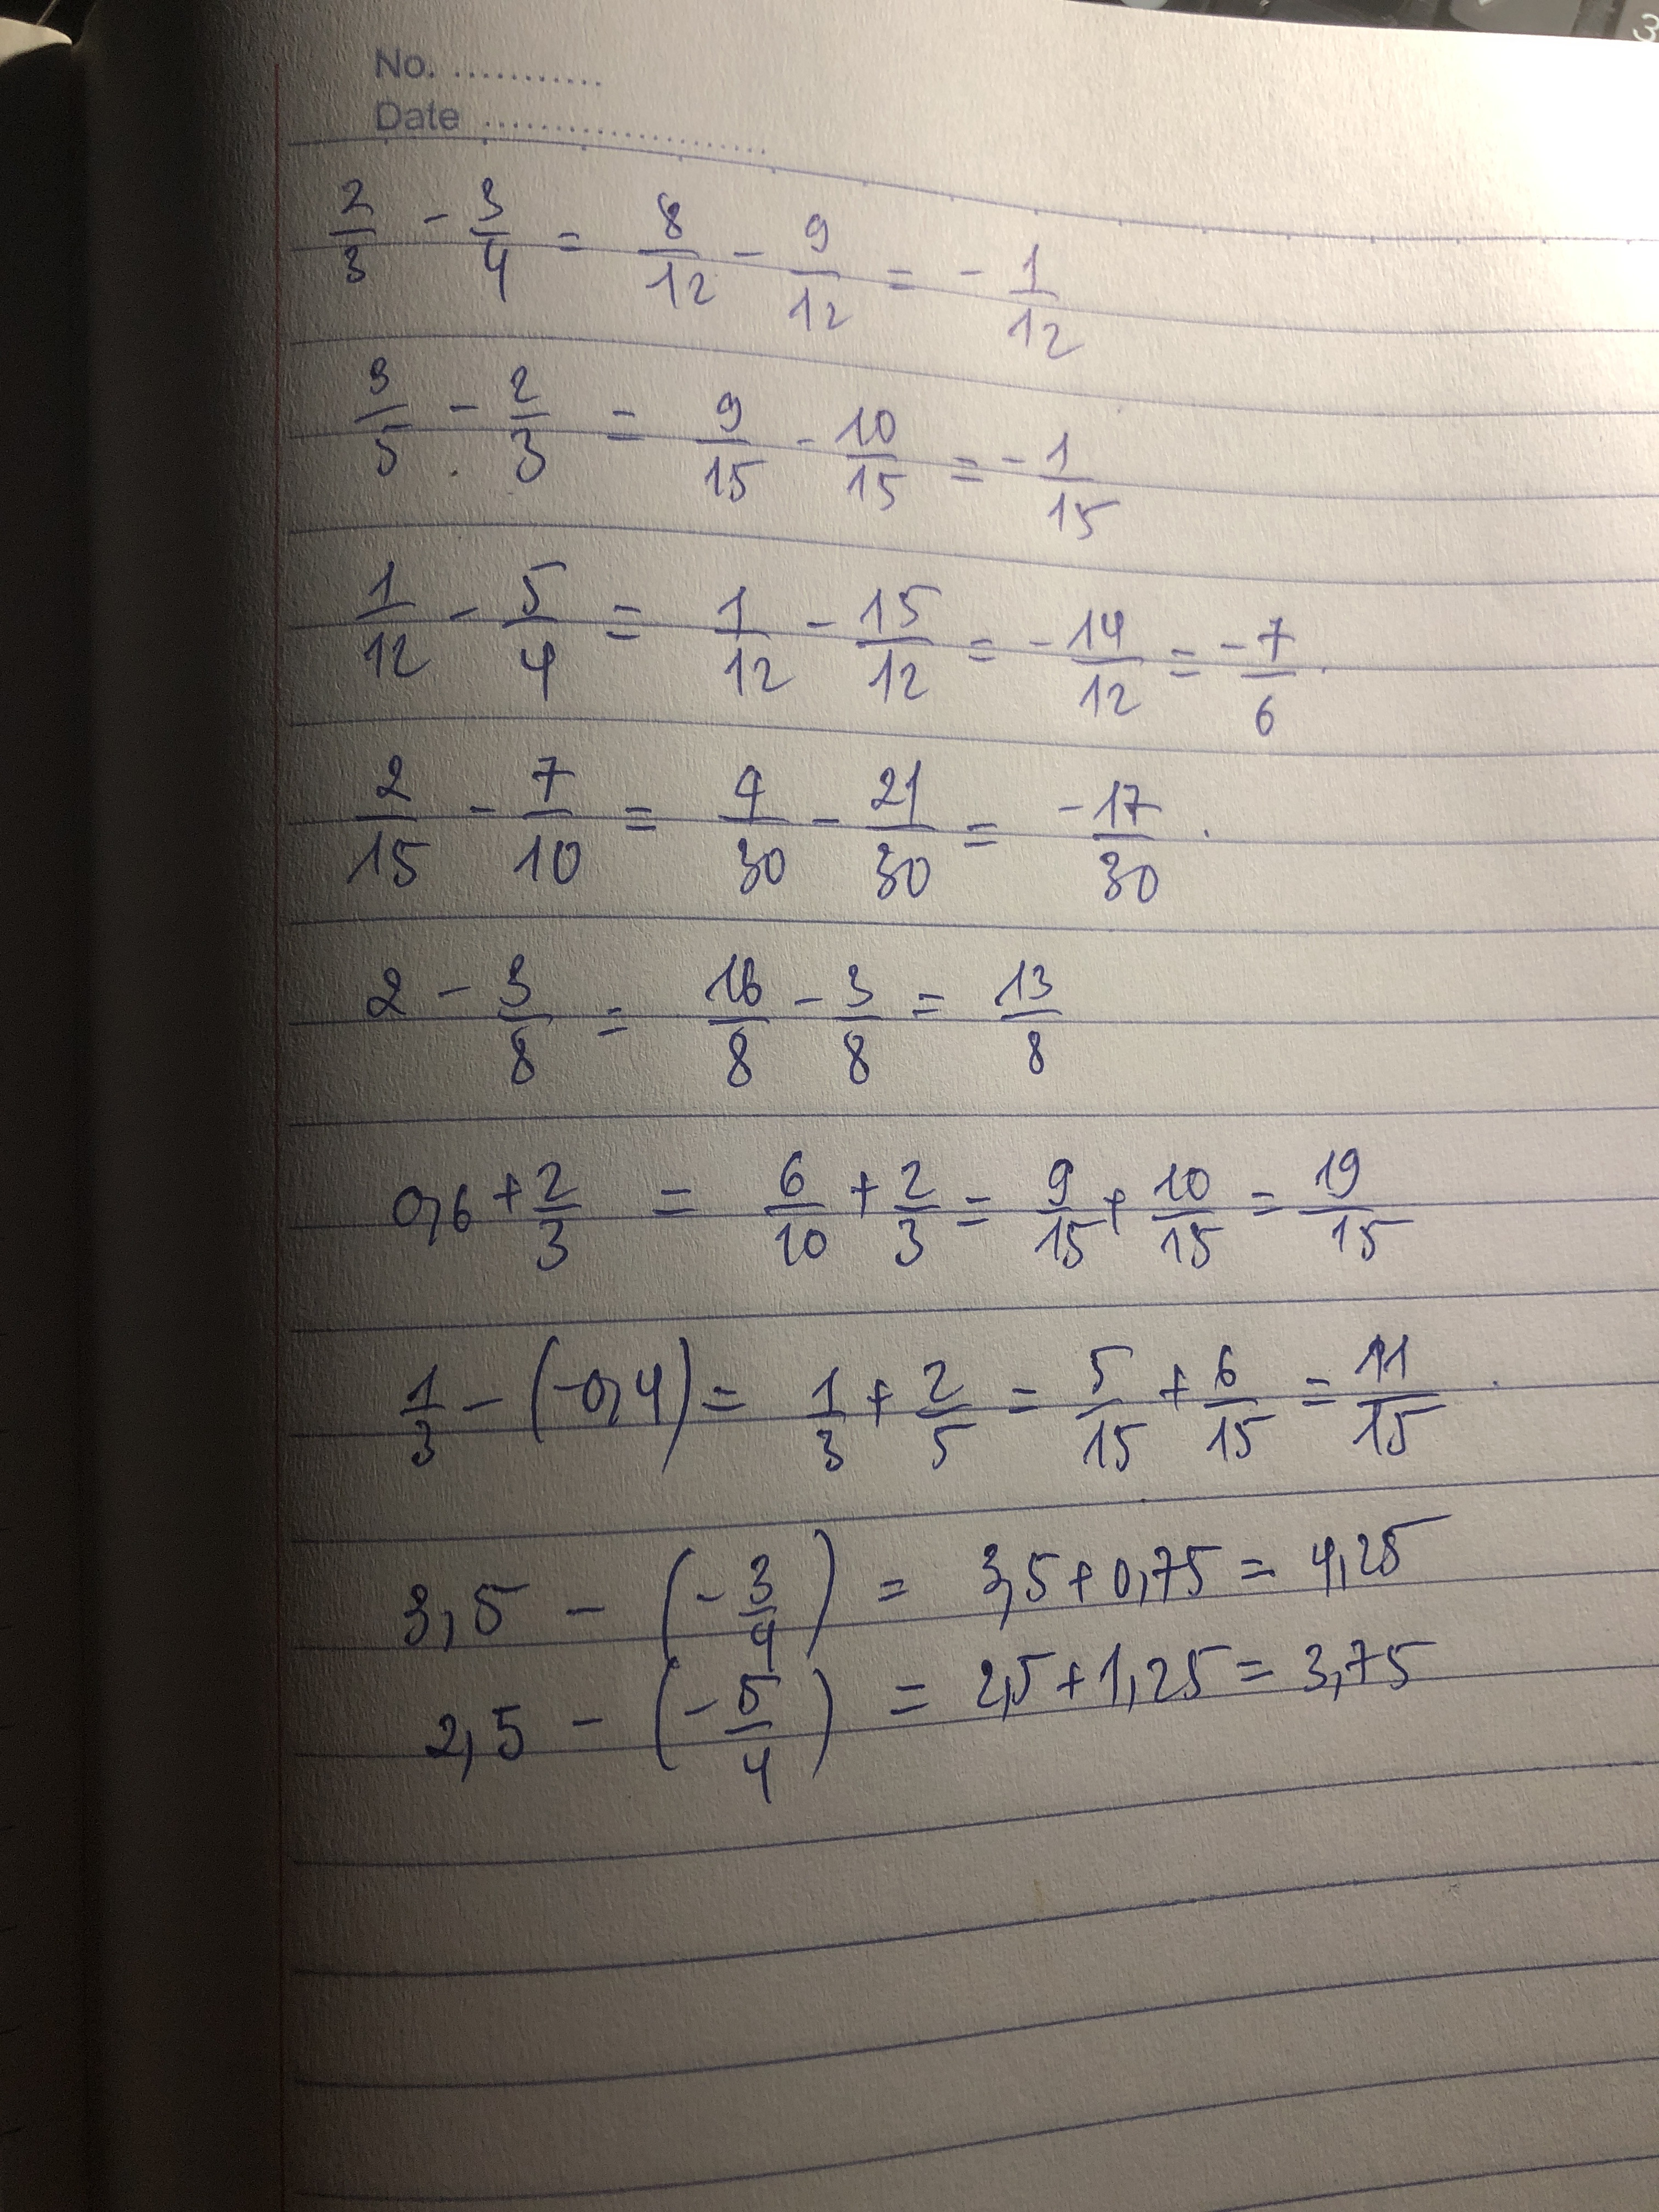 No. ...........
Date ......................
2/3 - 3/4 = 8/12 - 9/12 = - 1/12
3/5 - 2/3 = 9/15 - 10/15 = - 1/15
1/12 - 5/4 = 1/12 - 15/12 = - 14/12 = -7/6
2/15 - 7/10 = 4/30 - 21/30 = -17/30.
2 - 3/8 = 16/8 - 3/8 = 13/8
0,6 + 2/3 = 6/10 + 2/3 = 9/15 + 10/15 = 19/15
1/3 - (-0,4) = 1/3 + 2/5 = 5/15 + 6/15 = 11/15.
3,5 - (-3/4) = 3,5 + 0,75 = 4,25
2,5 - (-5/4) = 2,5 + 1,25 = 3,75